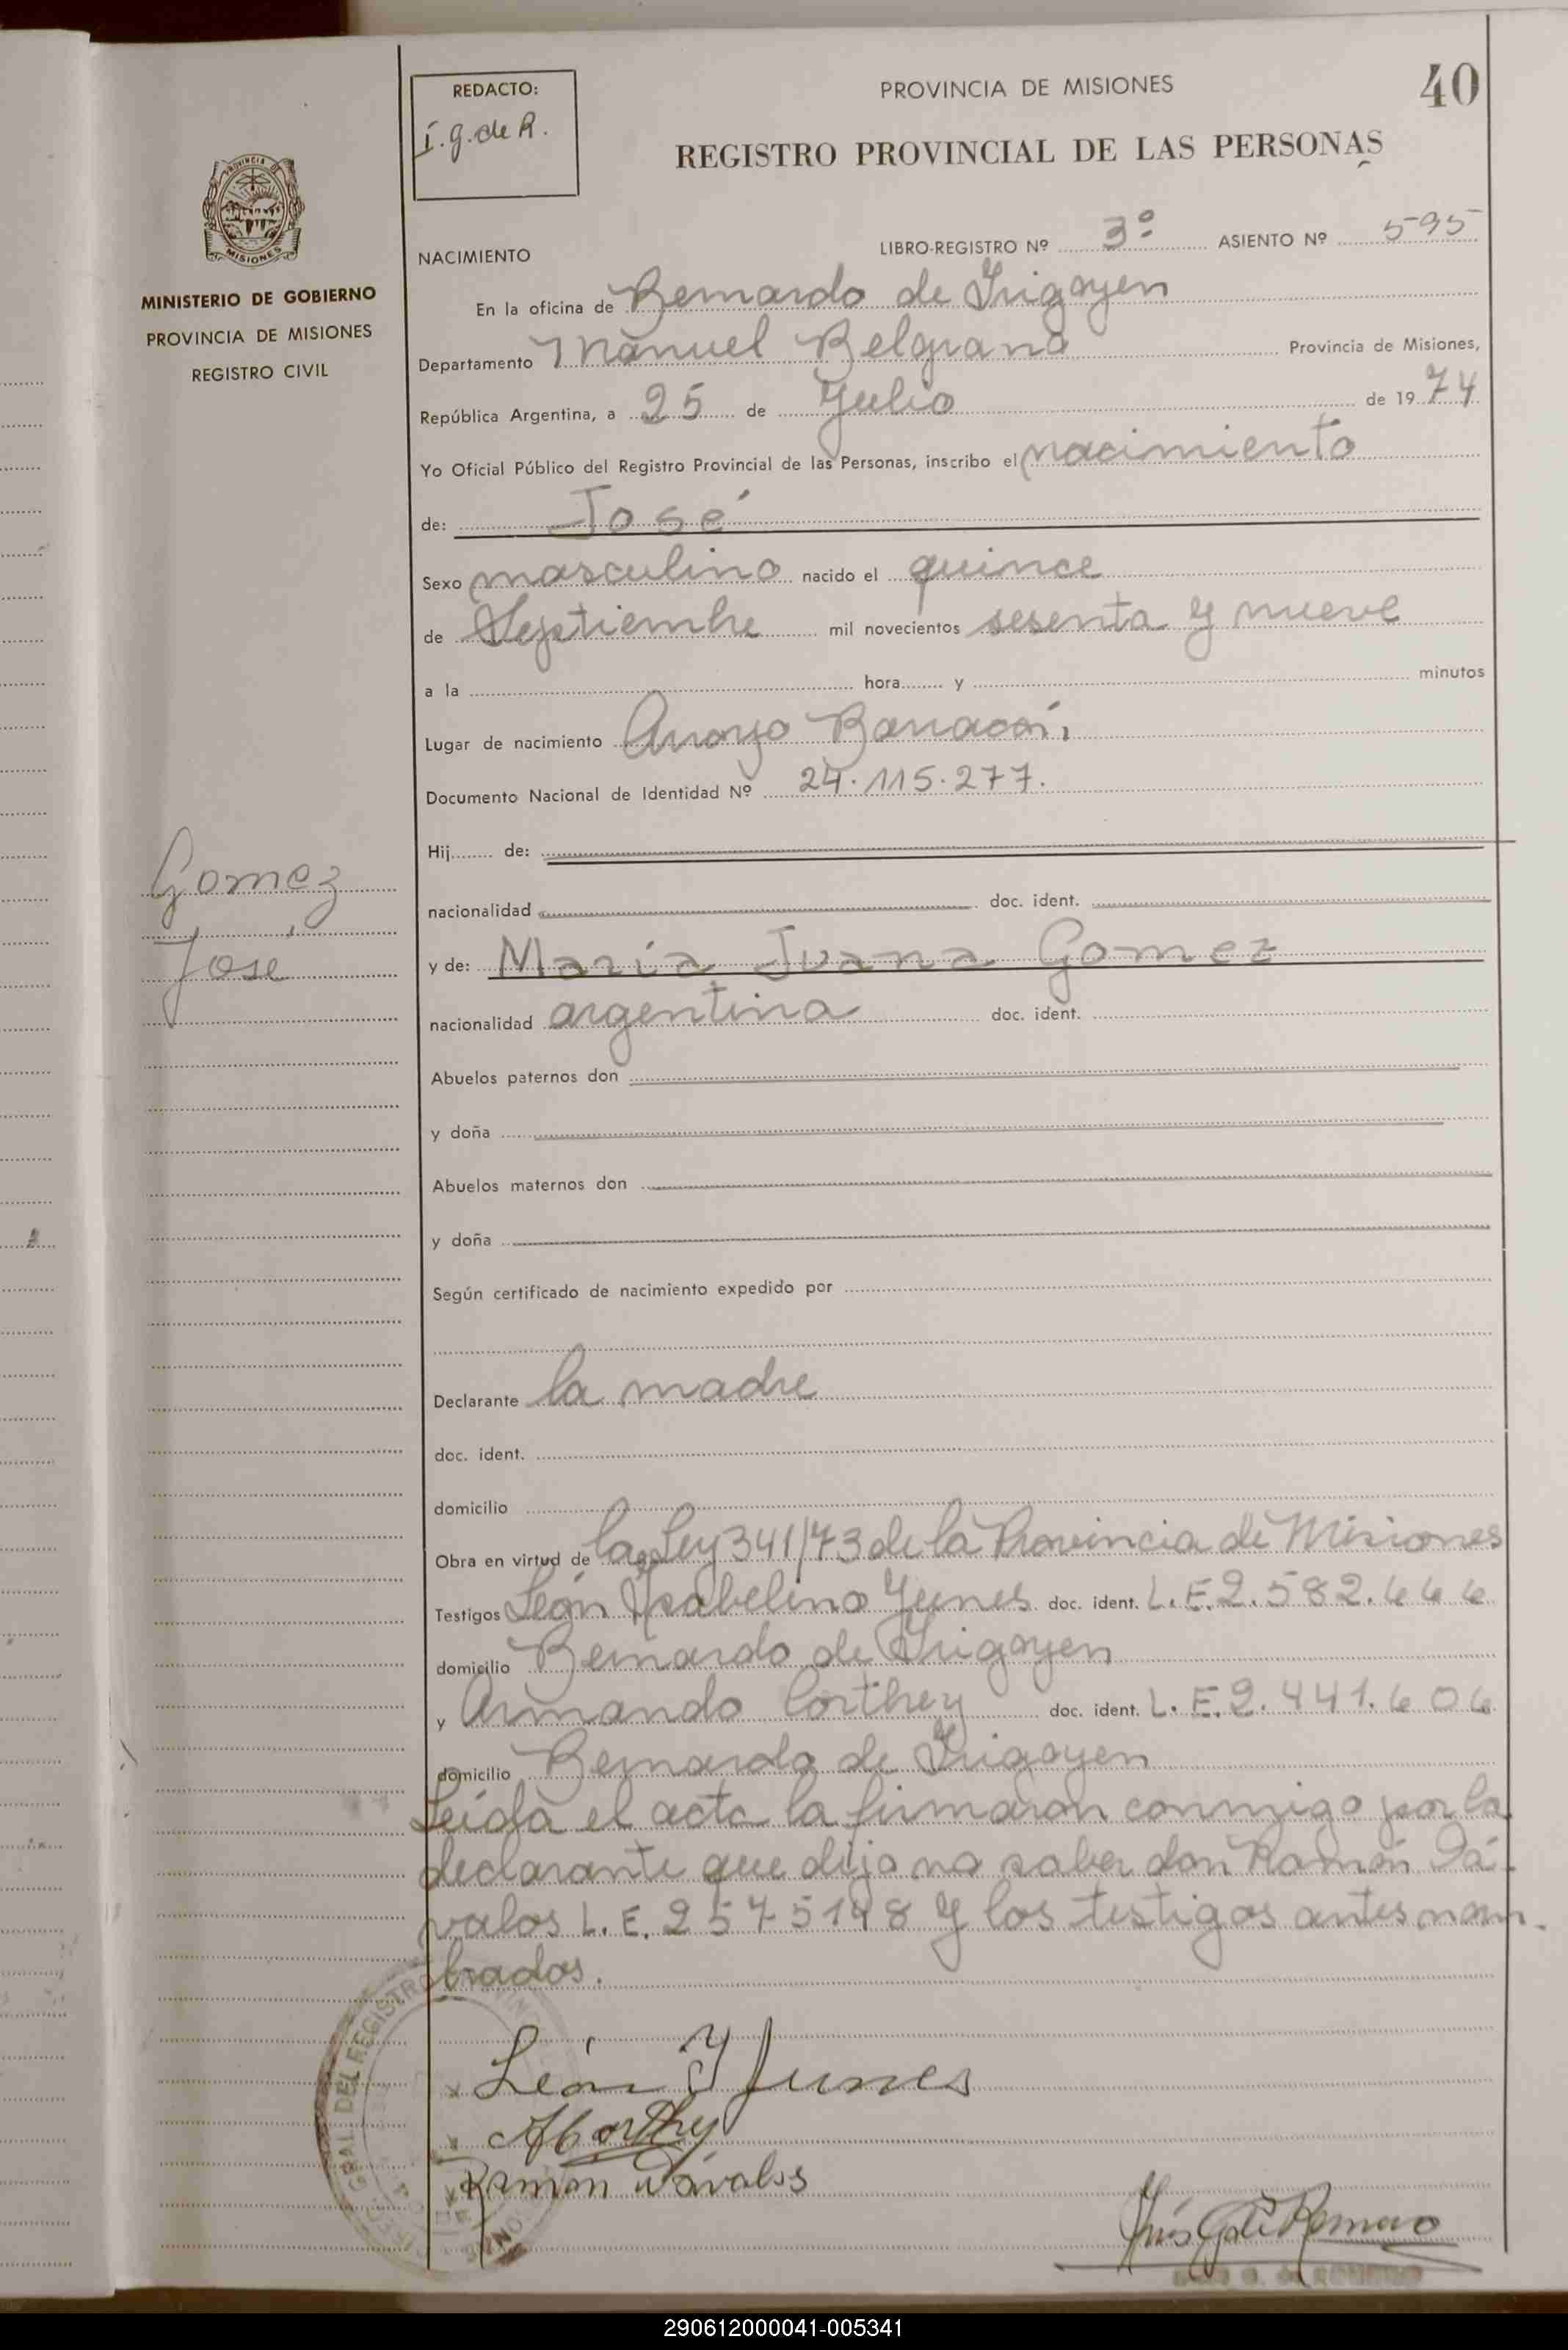 40
REDACTO:
I.g.de R.
PROVINCIA DE MISIONES
REGISTRO PROVINCIAL DE LAS PERSONAS
PROVINCIA DE
MISIONES
MINISTERIO DE GOBIERNO
PROVINCIA DE MISIONES
REGISTRO CIVIL
NACIMIENTO LIBRO-REGISTRO Nº 3º ASIENTO Nº 595
En la oficina de Bernardo de Irigoyen
Departamento Manuel Belgrano Provincia de Misiones,
República Argentina, a 25 de Julio de 1974
Yo Oficial Público del Registro Provincial de las Personas, inscribo el nacimiento
de: José
Sexo masculino nacido el quince
de Septiembre mil novecientos sesenta y nueve
a la hora y minutos
Lugar de nacimiento Arroyo
Documento Nacional de Identidad Nº 24.115.277.
Hij de:
Gomez
José
nacionalidad doc. ident.
y de: María Juana Gomez
nacionalidad argentina doc. ident.
Abuelos paternos don
y doña
Abuelos maternos don
y doña
Según certificado de nacimiento expedido por
Declarante la madre
doc. ident.
domicilio
Obra en virtud de la Ley 341/73 de la Provincia de Misiones
Testigos León Ysabelino Yunes doc. ident. L.E.2.582.666
domicilio Bernardo de Irigoyen
y Armando Corthey doc. ident. L.E.2.441.606
domicilio Bernardo de Irigoyen
Leída el acta la firmaron conmigo por la
declarante que dijo no saber don Ramón Dá-
valos L.E. 2575148 y los testigos antes nom-
brados.
León Y Junes
ACorthey
Ramon Dávalos
Inés G de Romero
290612000041-005341